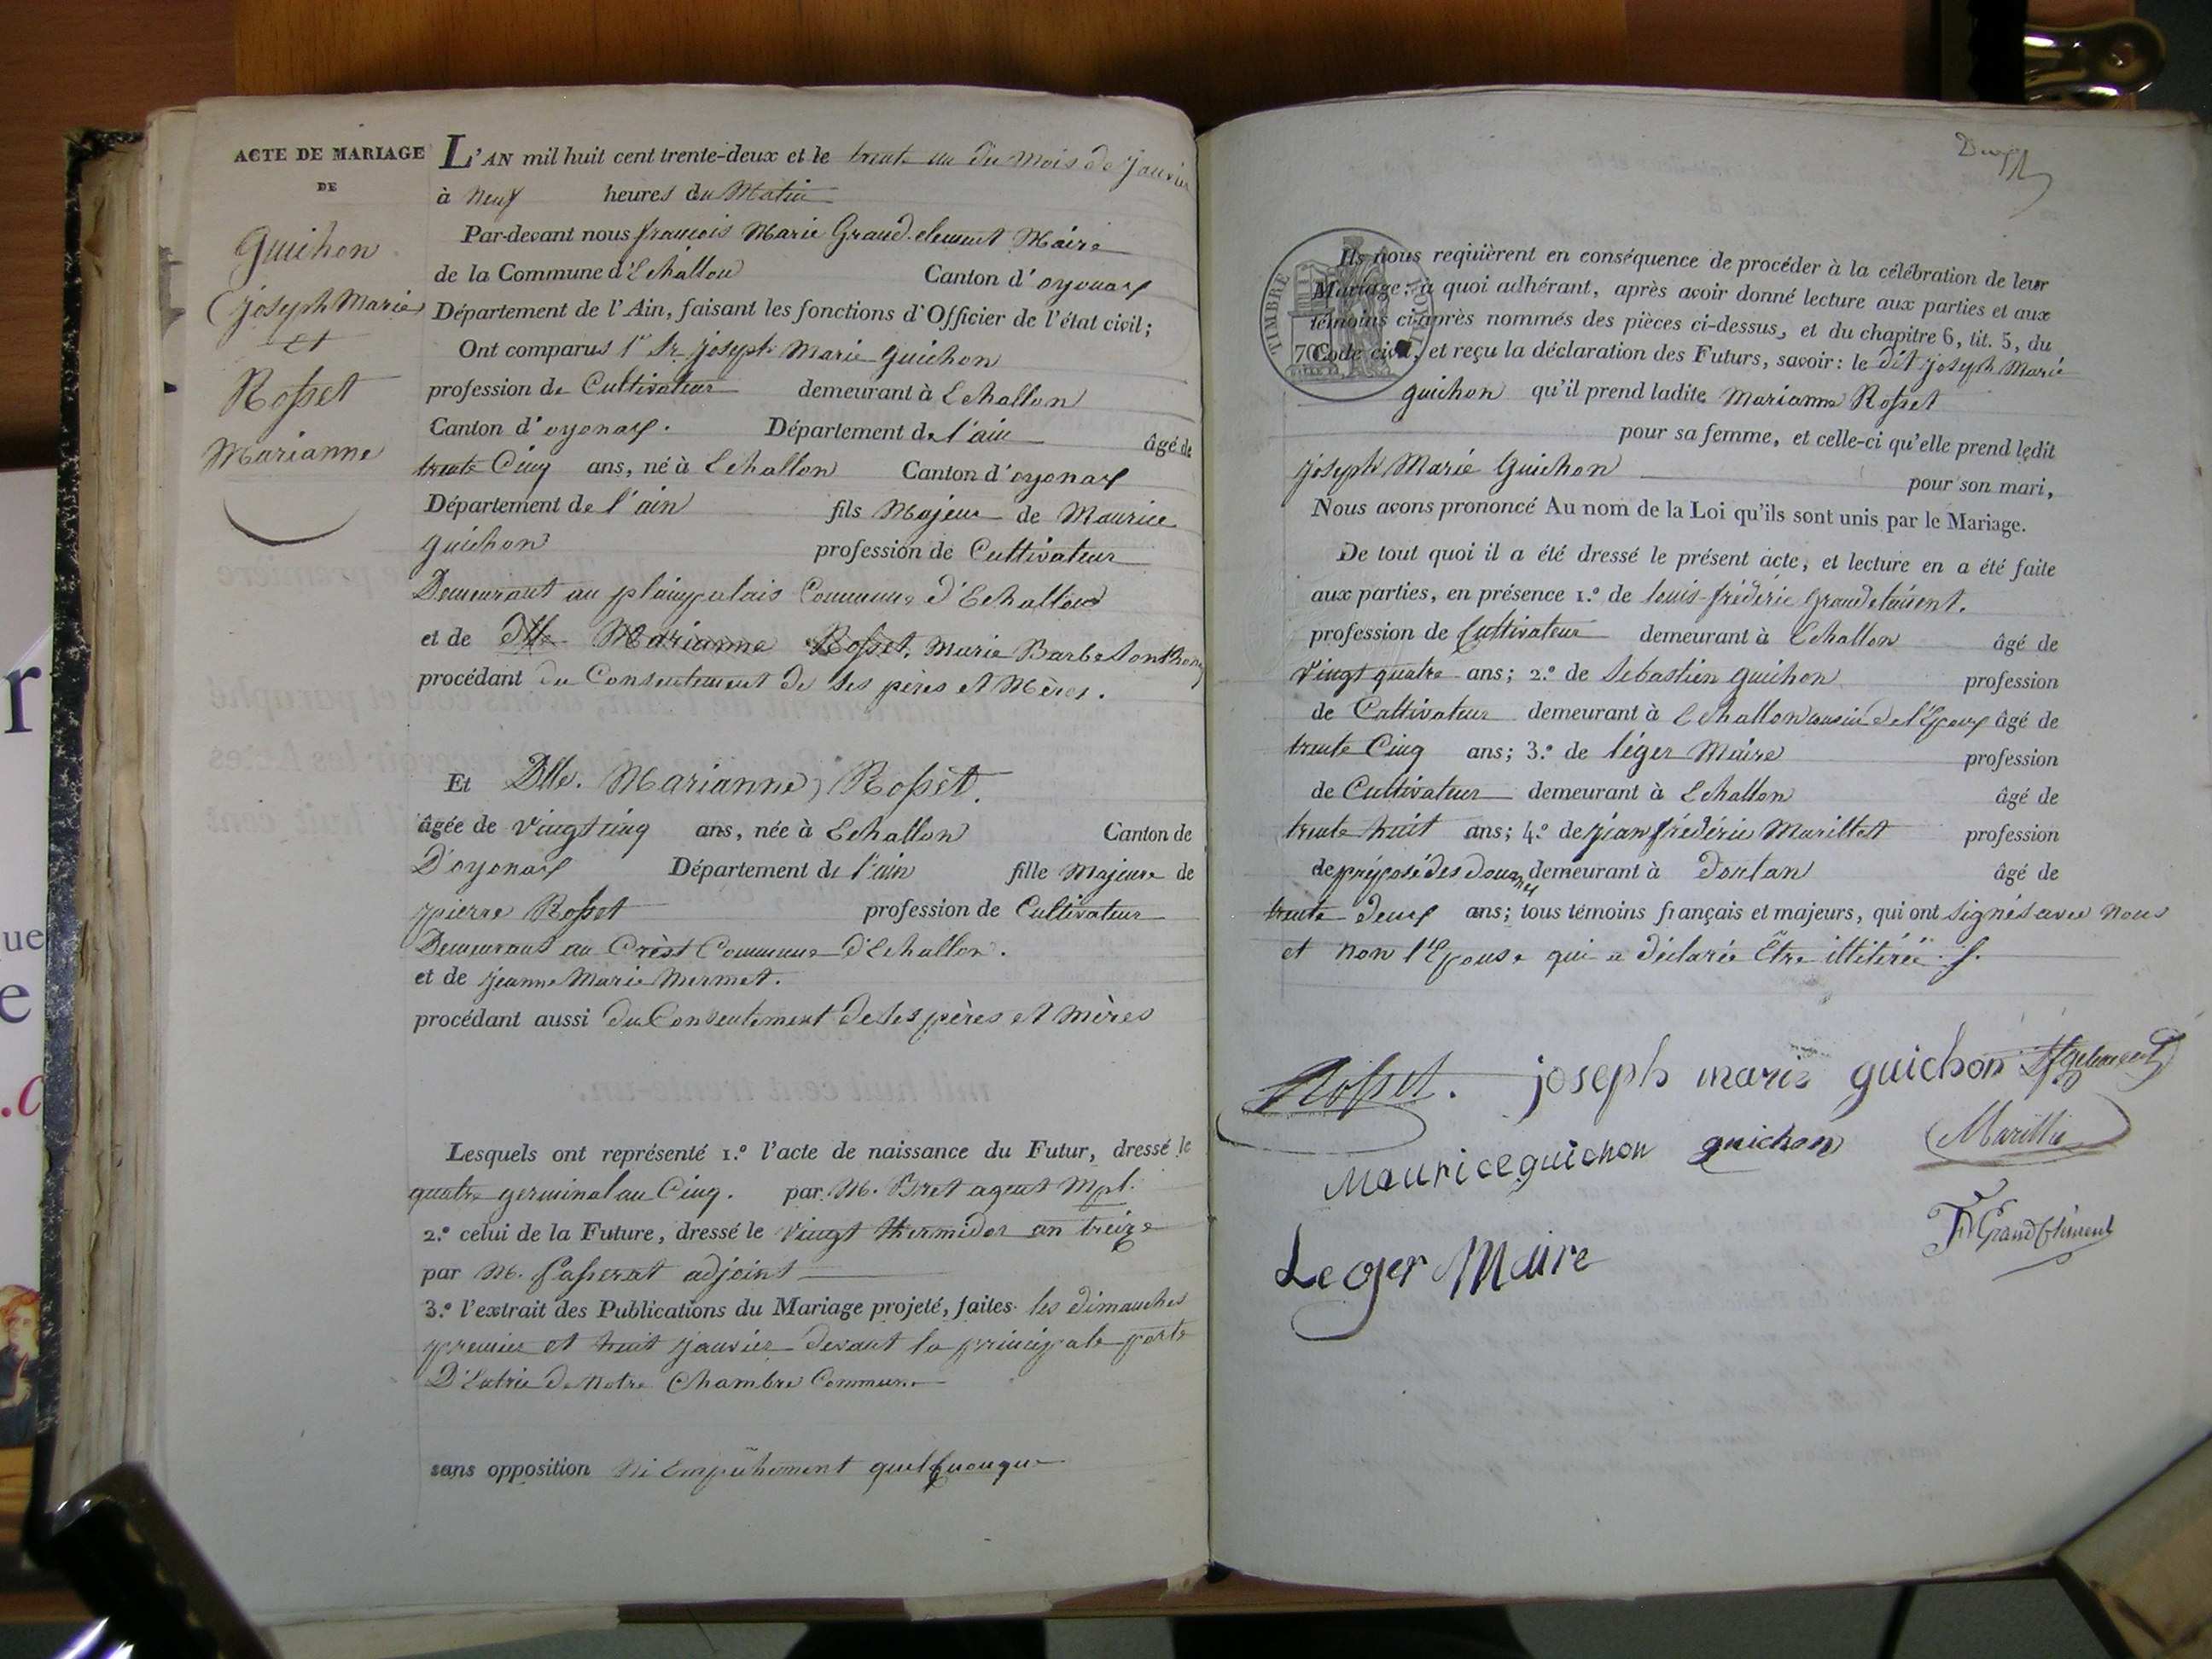 ACTE DE MARIAGE
DE
Guichon
Joseph Marie
et
Rosset
Marianne
L'AN mil huit cent trente-deux et le trente un du mois de janvier
à neuf heures du Matin
Par-devant nous françois Marie Grand-clement Maire
de la Commune d'Echallon Canton d'oyonax
Département de l'Ain, faisant les fonctions d'Officier de l'état civil;
Ont comparus 1° Sr joseph Marie guichon
profession de Cultivateur demeurant à Echallon
Canton d'oyonax. Département de l'ain âgé de
trente Cinq ans, né à Echallon Canton d'oyonax
Département de l'ain fils Majeur de Maurice
guichon profession de Cultivateur
Demeurant au Commune d'Echallon
et de Dlle Marianne Rosset, Marie Barbe
procédant du Consentement de ses pères et Mères.
Et Dlle. Marianne Rosset.
âgée de vingt cinq ans, née à Echallon Canton de
D'oyonax Département de l'ain fille Majeure de
pierre Rosset profession de Cultivateur
Demeurant au Crèst Commune d'Echallon.
et de jeanne Marie Mermet.
procédant aussi du Consentement de ses pères et mères
Lesquels ont représenté 1.° l'acte de naissance du Futur, dressé le
quatre germinal an Cinq. par M. Bret agent Mpl.
2.° celui de la Future, dressé le vingt thermidor an treize
par M. Passerat adjoint
3.° l'extrait des Publications du Mariage projeté, faites les dimanches
premier et huit janvier devant la principale porte
D'Entrée de Notre Chambre Commune
sans opposition Ni Empêchement quelquonque
TIMBRE
70
Ils nous requièrent en conséquence de procéder à la célébration de leur
Mariage; à quoi adhérant, après avoir donné lecture aux parties et aux
témoins ci-après nommés des pièces ci-dessus, et du chapitre 6, tit. 5, du
Code civil, et reçu la déclaration des Futurs, savoir: le dit joseph Marie
guichon qu'il prend ladite Marianne Rosset
pour sa femme, et celle-ci qu'elle prend ledit
joseph Marie Guichon pour son mari,
Nous avons prononcé Au nom de la Loi qu'ils sont unis par le Mariage.
De tout quoi il a été dressé le présent acte, et lecture en a été faite
aux parties, en présence 1.° de louis-fréderic grandclément.
profession de Cultivateur demeurant à Echallon âgé de
vingt quatre ans; 2.° de Sebastien guichon profession
de Cultivateur demeurant à Echallon cousin de l'Epoux âgé de
trente Cinq ans; 3.° de léger Maire profession
de Cultivateur demeurant à Echallon âgé de
trente huit ans; 4.° de jean frédéric Marillet profession
de préposé des douanes demeurant à Dortan âgé de
trente deux ans; tous témoins français et majeurs, qui ont signés avec Nous
et non l'Epouse qui a déclarée être illitérée.
Rosset. joseph marie guichon
Maurice guichon guichon
Leger Maire
Grandclément